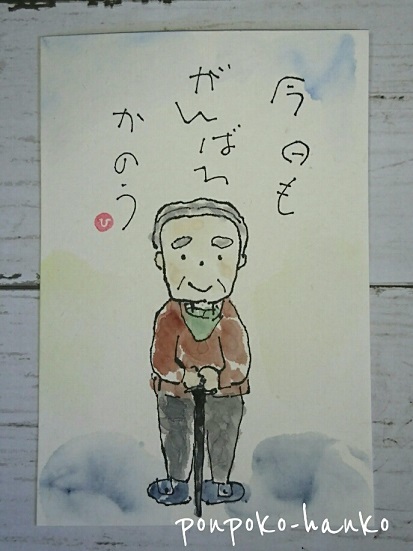 今日も
がんばれ
かのう
ひ
ponpoko-hanko